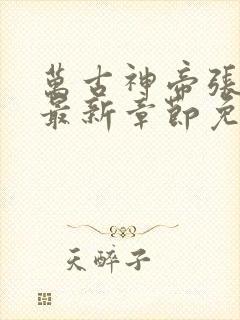 萬古神帝張
最新章節免
天醉子